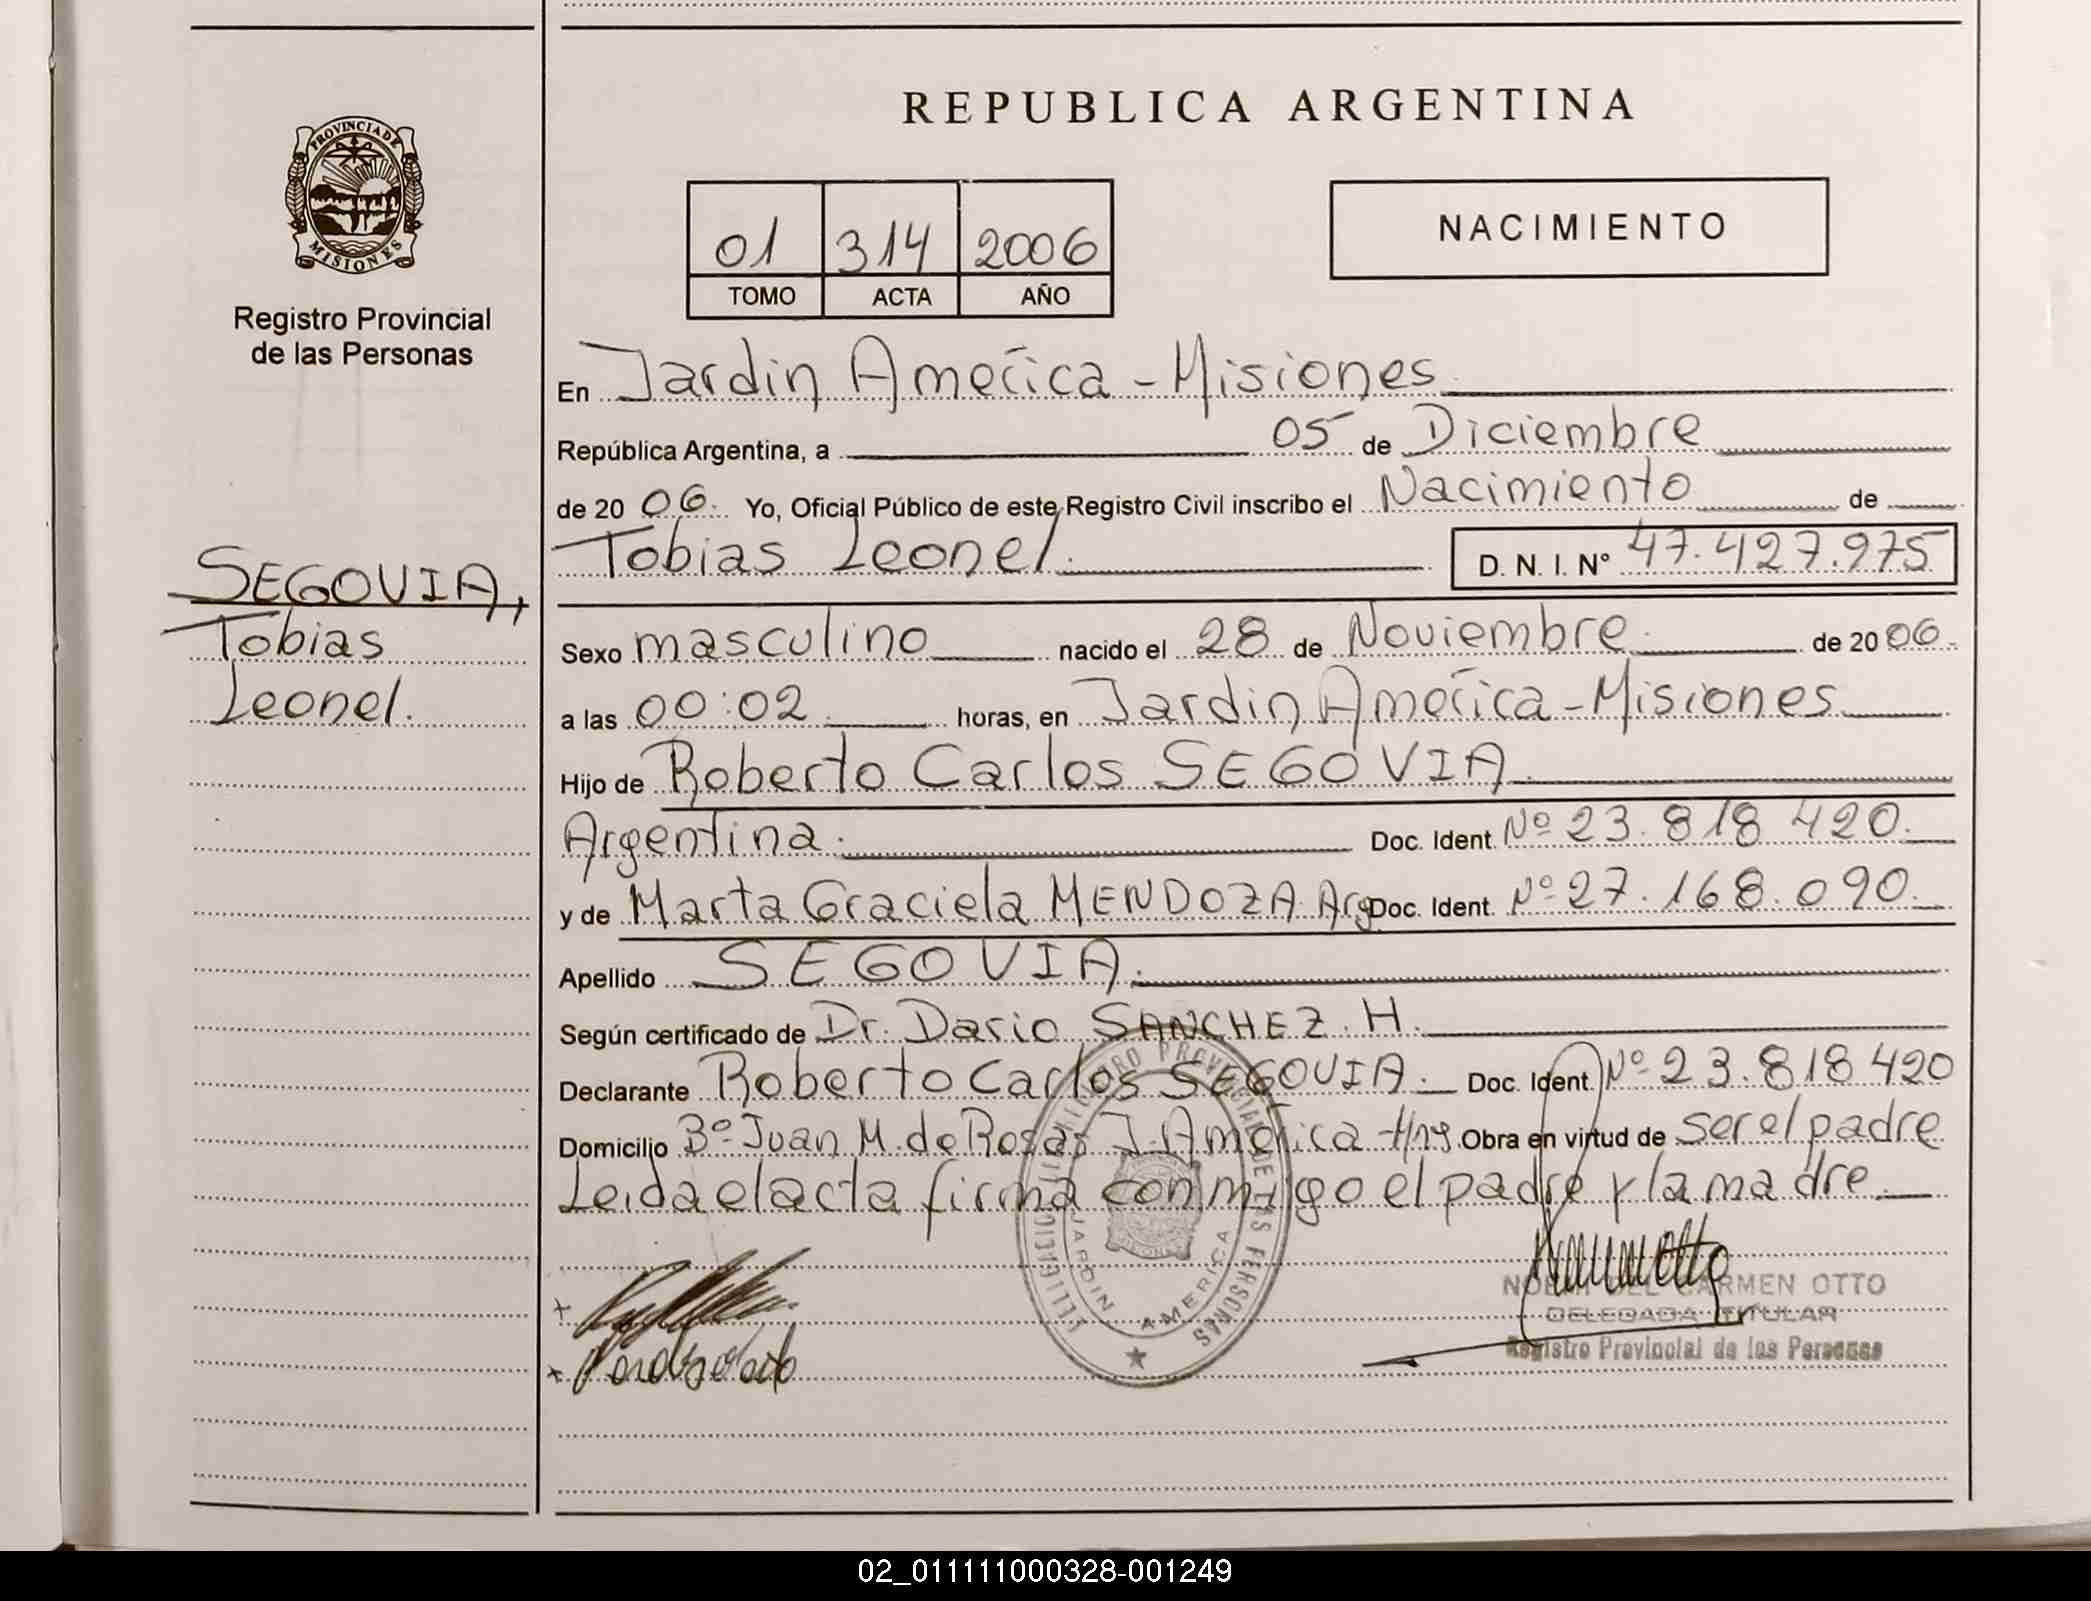 REPUBLICA ARGENTINA
PROVINCIA DE
MISIONES
Registro Provincial
de las Personas
01 314 2006
TOMO ACTA AÑO
NACIMIENTO
En Jardin América - Misiones
República Argentina, a 05 de Diciembre
de 20 06. Yo, Oficial Público de este Registro Civil inscribo el Nacimiento de
Tobias Leonel. D. N. I. Nº 47.427.975
SEGOVIA,
Tobias
Leonel.
Sexo masculino nacido el 28 de Noviembre. de 20 06.
a las 00:02 horas, en Jardin América - Misiones
Hijo de Roberto Carlos SEGOVIA.
Argentina. Doc. Ident. Nº 23.818 420.
y de Marta Graciela MENDOZA Arg Doc. Ident. Nº 27.168.090.
Apellido SEGOVIA.
Según certificado de Dr. Dario SANCHEZ. H.
Declarante Roberto Carlos SEGOVIA. Doc. Ident. Nº 23.818 420
Domicilio Bº Juan M. de Rosas J. América - Mnes. Obra en virtud de ser el padre
Leida el acta firma conmigo el padre y la madre
REGISTRO PROVINCIAL DE LAS PERSONAS
JARDIN AMERICA
NOEMI DEL CARMEN OTTO
DELEGADA TITULAR
Registro Provincial de las Personas
02_011111000328-001249